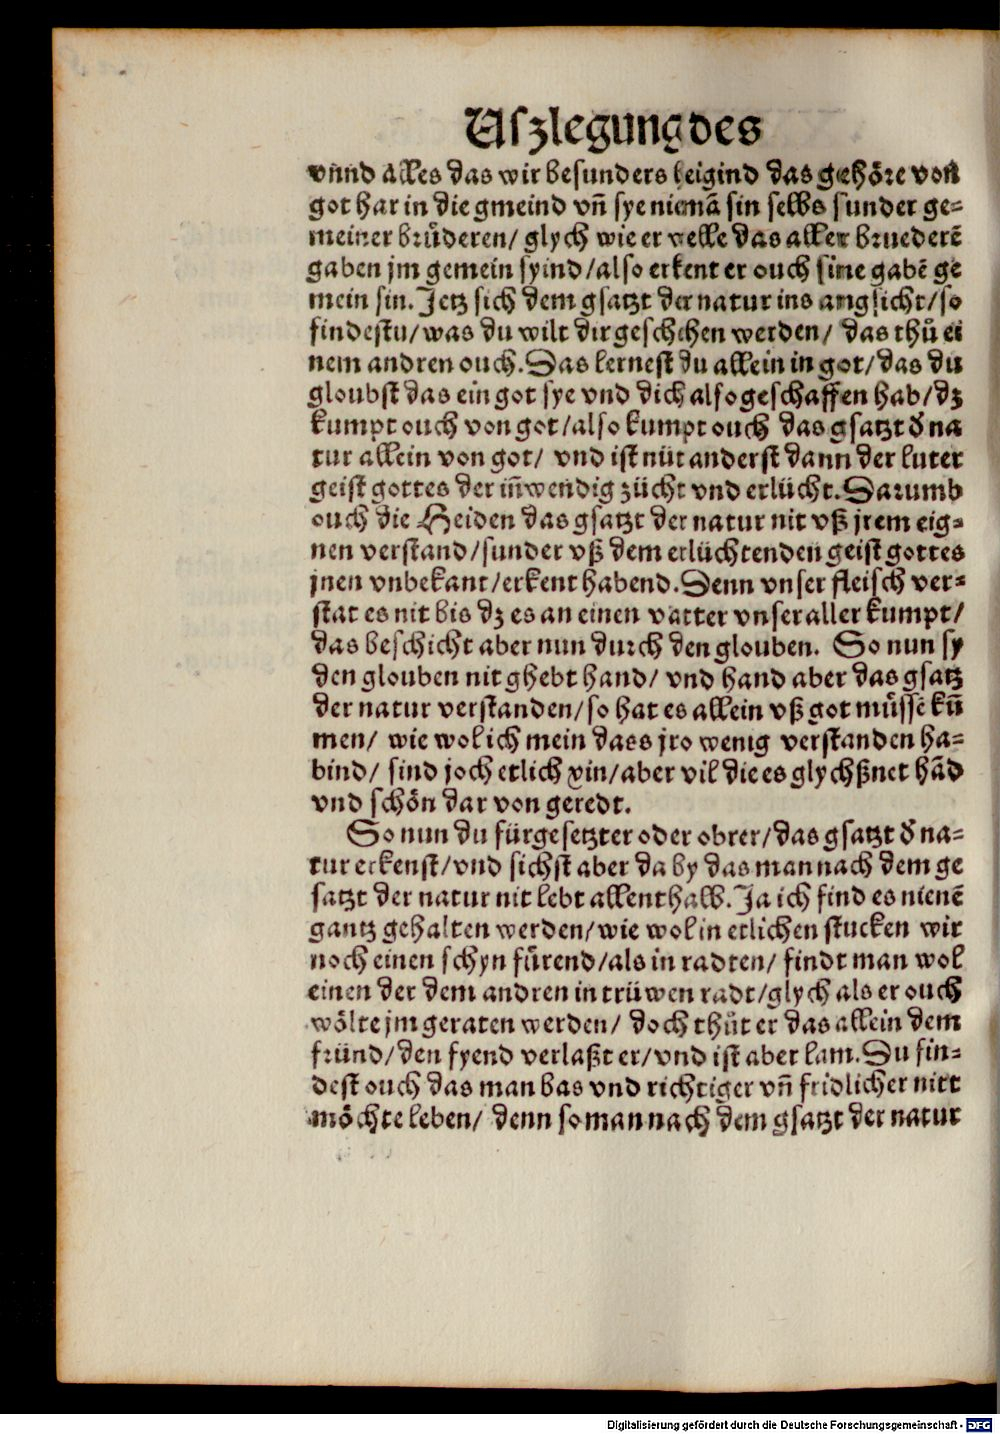 Uſzlegung des
vnnd alles das wir beſunders beigind das gehöre von
got har in die gmeind vñ ſye niemā ſin ſelbs ſunder ge⸗
meiner brůderen/ glych wie er welle das aller bruederē
gaben jm gemein ſyind/ alſo erkent er ouch ſine gabē ge
mein ſin. Jetz ſich dem gſatzt der natur ins angſicht/ ſo
findeſtu/ was du wilt dir geſchehen werden/ das thů ei
nem andren ouch. Das lerneſt du allein in got/ das du
gloubſt das ein got ſye vnd dich alſo geſchaffen hab/ dz
kumpt ouch von got/ alſo kumpt ouch das gſatzt d̕ na
tur allein von got/ vnd iſt nüt anderſt dann der luter
geiſt gottes der iñwendig zücht vnd erlücht. Darumb
ouch die Heiden das gſatzt der natur nit vß jrem eig⸗
nen verſtand/ ſunder vß dem erlüchtenden geiſt gottes
jnen vnbekant/ erkent habend. Denn vnſer fleiſch ver⸗
ſtat es nit bis dz es an einen vatter vnſer aller kumpt/
das beſchicht aber nun durch den glouben. So nun ſy
den glouben nit ghebt hand/ vnd hand aber das gſatz
der natur verſtanden/ ſo hat es allein vß got müſſē kū
men/ wie wol ich mein dass jro wenig verſtanden ha⸗
bind/ ſind joch etlich xin/ aber vil die es glychßnet hād
vnd ſchön dar von geredt.
So nun du fürgeſetzter oder obrer/ das gſatzt d̕ na⸗
tur erkenſt/ vnd ſichſt aber da by das man nach dem ge
ſatzt der natur nit lebt allenthalb. Ja ich find es nienē
gantz gehalten werden/ wie wol in etlichen ſtucken wir
noch einen ſchyn fürend/ als in radten/ findt man wol
einen der dem andren in trüwen radt/ glych als er ouch
wölte jm geraten werden/ doch thůt er das allein dem
fründ/ den fyend verlaßt er/ vnd iſt aber lam. Du fin⸗
deſt ouch das man bas vnd richtiger vñ fridlicher nitt
möchte leben/ denn ſo man nach dem gſatzt der natur
Digitalisierung gefördert durch die Deutsche Forschungsgemeinschaft - DFG